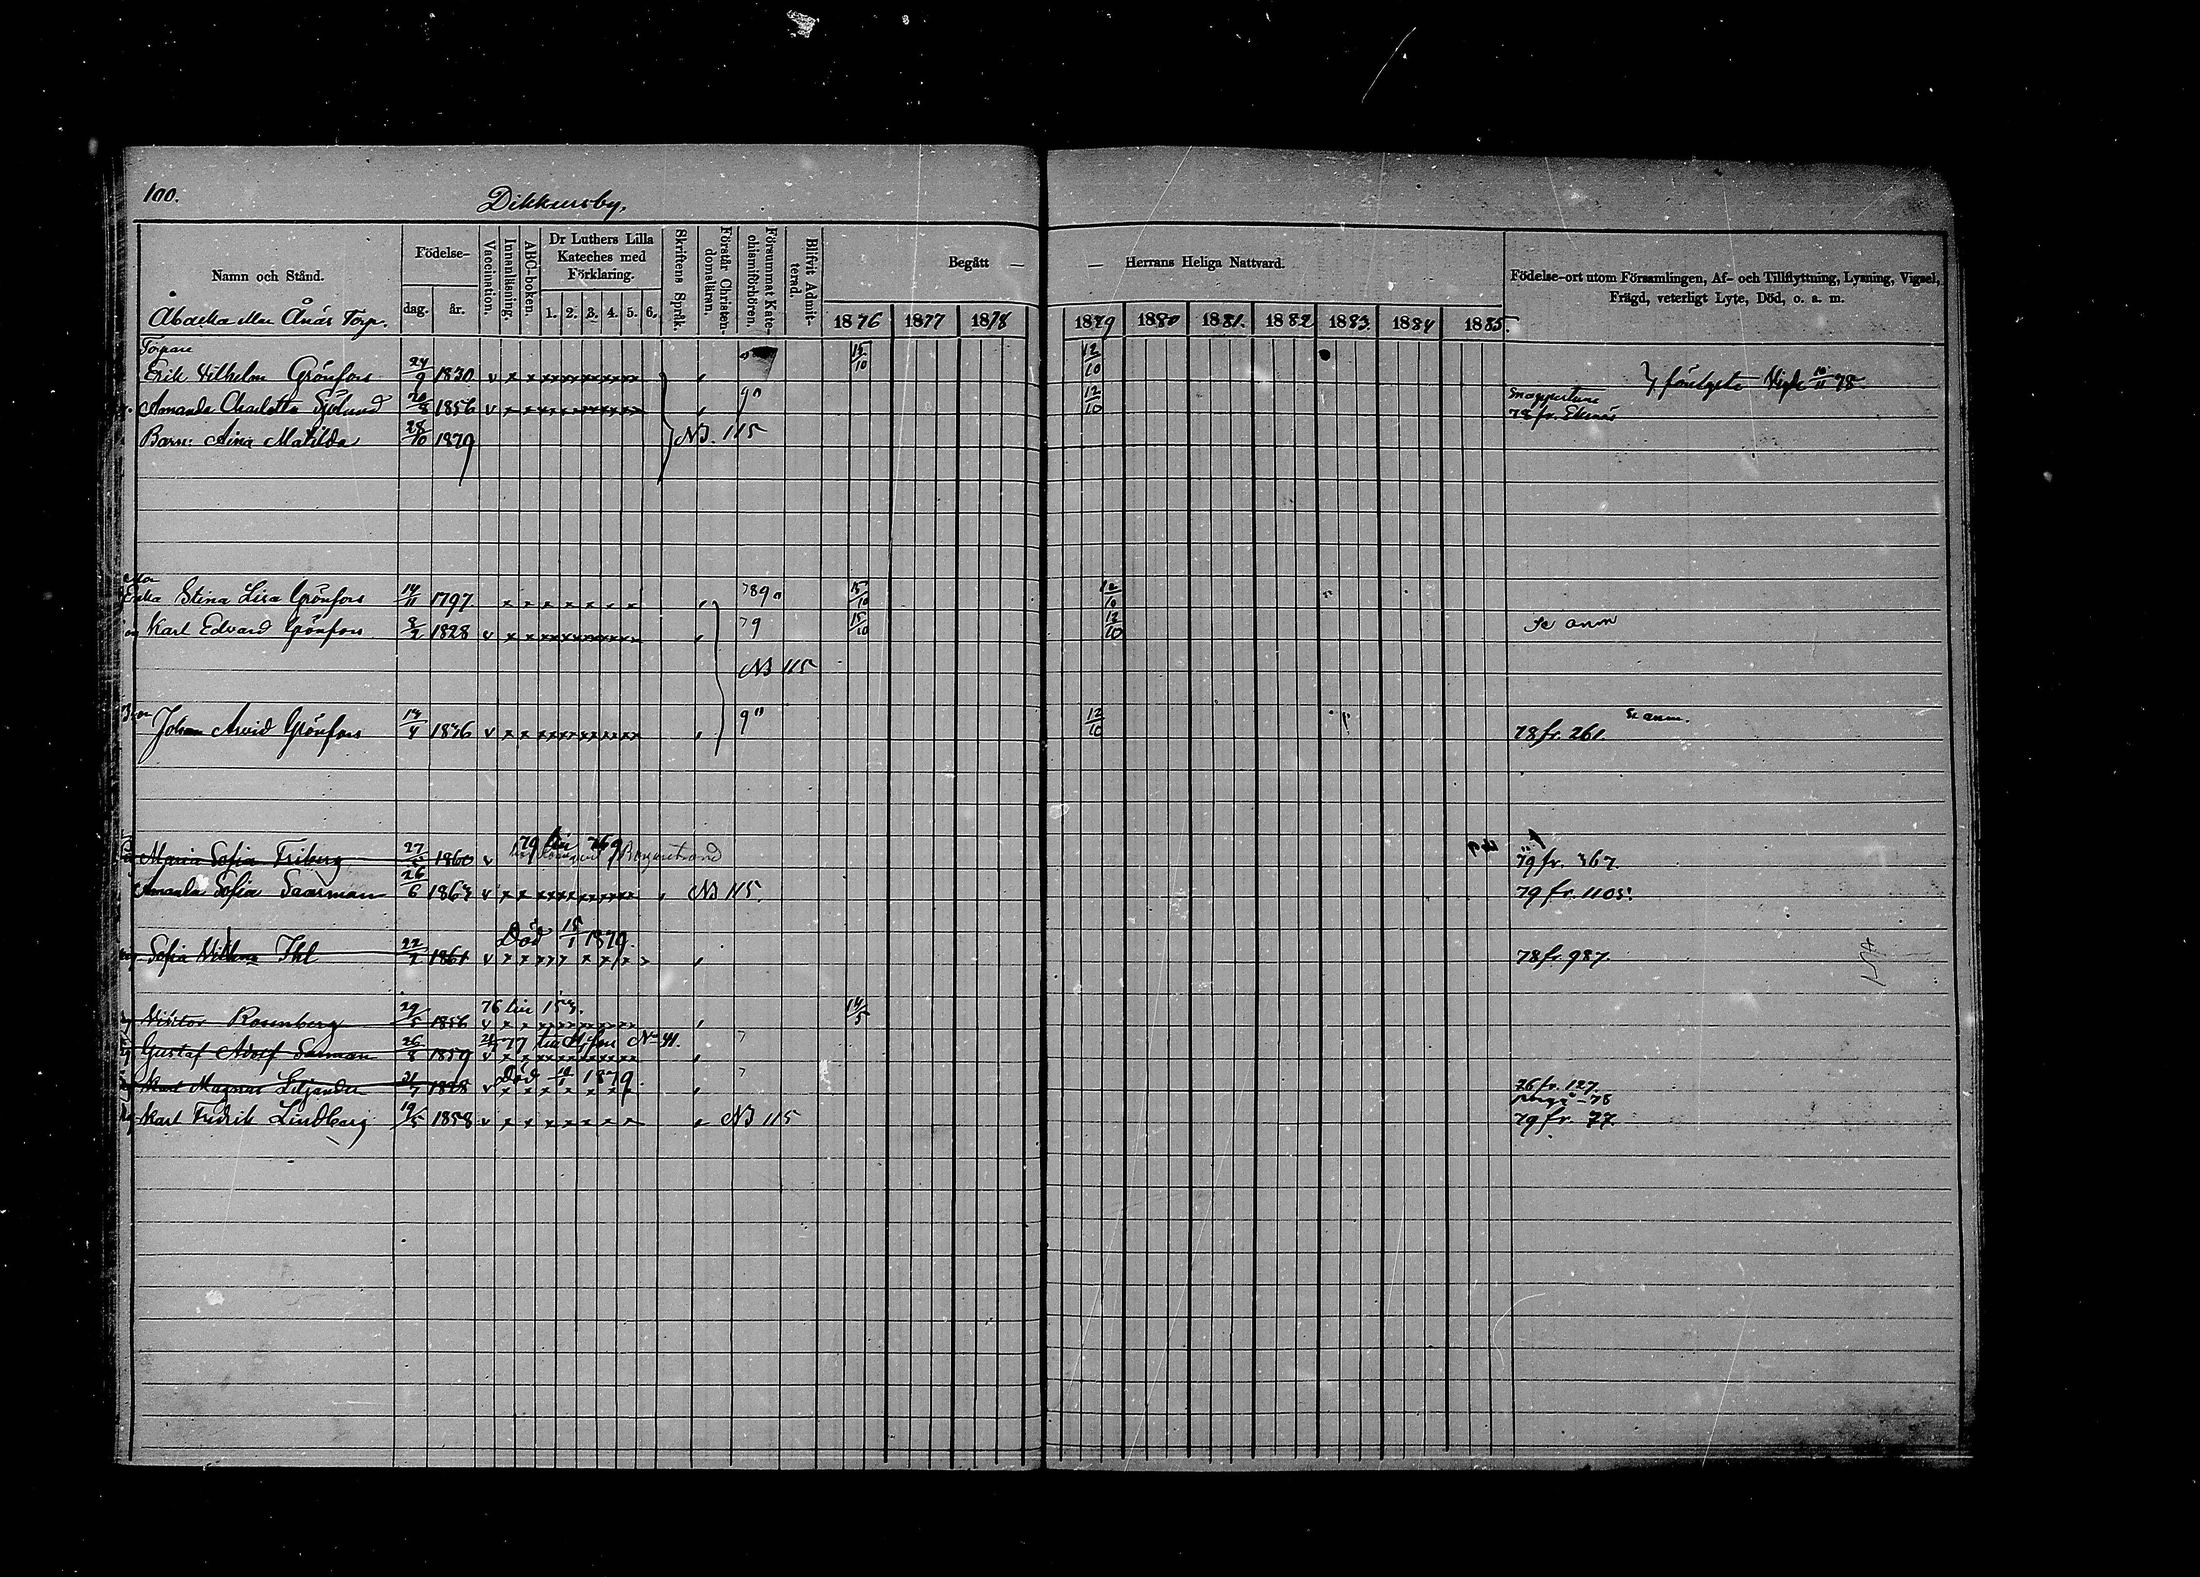 100.
Dikkursby.
Namn och Stånd.
Födelse-
dag.
år.
Vaccination.
Innanläsning.
ABC-boken.
Dr Luthers Lilla
Kateches med
Förklaring.
1. 2. 3. 4. 5. 6.
Skriftens Språk.
Förstår Christen-
domsläran.
Försummat Kate-
chismiförhören.
Blifvit Admit-
terad.
Begått —
— Herrans Heliga Nattvard.
Födelse-ort utom Församlingen, Af- och Tillflyttning, Lysning, Vigsel,
Frägd, veterligt Lyte, Död, o. a. m.
1876 1877 1878 1879 1880 1881. 1882 1883 1884 1885.
Ånäs Torp.
Torpare
Erik Vilhelm Grönfors 24/9 1830 v 15/10 12/10
Vigde 10/11 78.
Amanda Charlotta Sjölund 20/8 1856 v 9" 12/10
78 fr. Ekenäs
Barn: Aina Matilda 28/10 1879 NB. 115
Stina Lisa Grönfors 14/11 1797 789" 15/10 12/10
Karl Edvard Grönfors 1828 v 79 15/10 12/10 Se anm
NB 115
Johan Arvid Grönfors 1836 v 9" 12/10 78 fr. 261.
Se anm.
79 till 769
Maria Sofia Friberg 27 1860 v 79 fr. 367.
Amanda Sofia Saarman 26/6 1863 v NB 115. 79 fr. 1105.
Död 15/1 1879.
Sofia Vilhma Ihl 22 1861 v 78 fr. 987.
76 till 153.
Viktor Rosenberg 29/5 1856 v 14/5
77 till
Gustaf Adolf Saarman 26/8 1859 v
Död 1879.
Karl Magnus Liljander 1828 v 76 fr. 127.
Karl Fridrik Lindberg 19/5 1858 v NB 115 79 fr. 77.